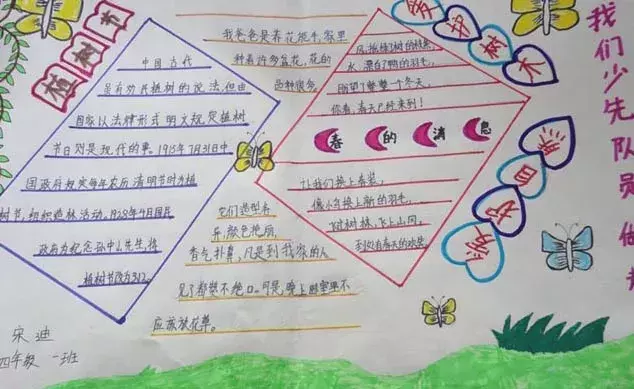 植树节
中国古代
虽有劝民植树的说法,但由
国家以法律形式明文规定植树
节日则是现代的事。1915年7月31日,中
国政府规定每年农历清明节时为植
树节,组织造林活动,1928年4月国民
政府为纪念孙中山先生,将
植树节改为3.12。
宋迪
四年级一班
我爸爸是养花能手,家里
种着许多盆花,花的
品种很多。
它们造型各
异,颜色艳丽,
香气扑鼻,凡是到我家的人
见了都赞不绝口。可是,晚上卧室里不
应该放花草。
爱护树木
风,摇绿了树的枝条,
水,漂白了鸭的羽毛,
盼望了整整一个冬天,
你看,春天已经来到!
春的消息
让我们换上春装,
像小鸟换上新的羽毛,
飞过树林,飞上山冈,
到处有春天的欢笑。
我们少先队员